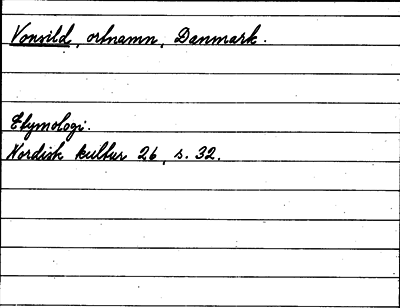 Vonsild, ortnamn, Danmark.
Etymologi.
Nordisk kultur 26, s. 32.